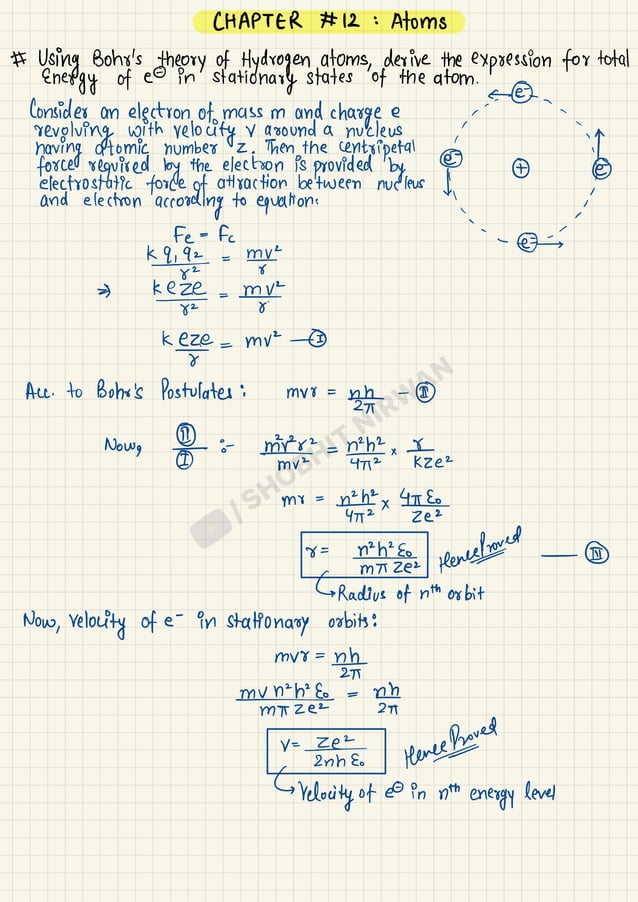 CHAPTER #12 : Atoms
# Using Bohr's theory of Hydrogen atoms, derive the expression for total
Energy of e⊖ in stationary states of the atom.
Consider an electron of mass m and charge e
revolving with velocity v around a nucleus
having atomic number z. Then the centripetal
force required by the electron is provided by
electrostatic force of attraction between nucleus
and electron according to equation:
e⁻
e⁻ + e⁻
e⁻
Fe = Fc
k q₁q₂/r² = mv²/r
⇒ keze/r² = mv²/r
k eze/r = mv² — Ⓘ
Acc. to Bohr's Postulates: mvr = nh/2π — Ⅱ
Now, Ⅱ/Ⅰ :- m²v²r²/mv² = n²h²/4π² × r/kze²
mr = n²h²/4π² × 4πε₀/ze²
r = n²h²ε₀/mπze² Hence Proved — Ⅲ
Radius of nᵗʰ orbit
Now, velocity of e⁻ in stationary orbits:
mvr = nh/2π
mv n²h²ε₀/mπze² = nh/2π
V = ze²/2nhε₀ Hence Proved
Velocity of e⊖ in nᵗʰ energy level
/SHOBHIT NIRWAN